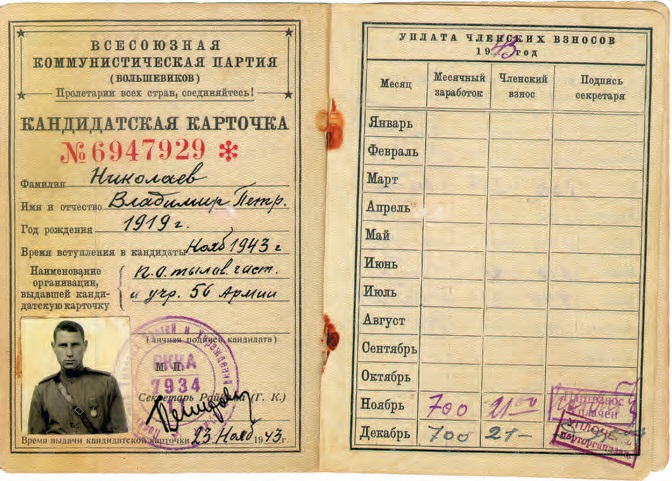 ВСЕСОЮЗНАЯ
КОММУНИСТИЧЕСКАЯ ПАРТИЯ
(БОЛЬШЕВИКОВ)
Пролетарии всех стран, соединяйтесь!
КАНДИДАТСКАЯ КАРТОЧКА
№ 6947929 *
Фамилия Николаев
Имя и отчество Владимир Петр.
Год рождения 1919 г.
Время вступления в кандидаты Нояб 1943 г
Наименование организации, выдавшей кандидатскую карточку П.О. тылав. част.
и учр. 56 Армии
(Личная подпись кандидата)
М. П.
РККА
7934
Секретарь (Г. К.)
Время выдачи кандидатской карточки 23 Нояб 1943 г.
УПЛАТА ЧЛЕНСКИХ ВЗНОСОВ
1943 ГОД
Месяц Месячный заработок Членский взнос Подпись секретаря
Январь
Февраль
Март
Апрель
Май
Июнь
Июль
Август
Сентябрь
Октябрь
Ноябрь 700 21-00
Декабрь 700 21-